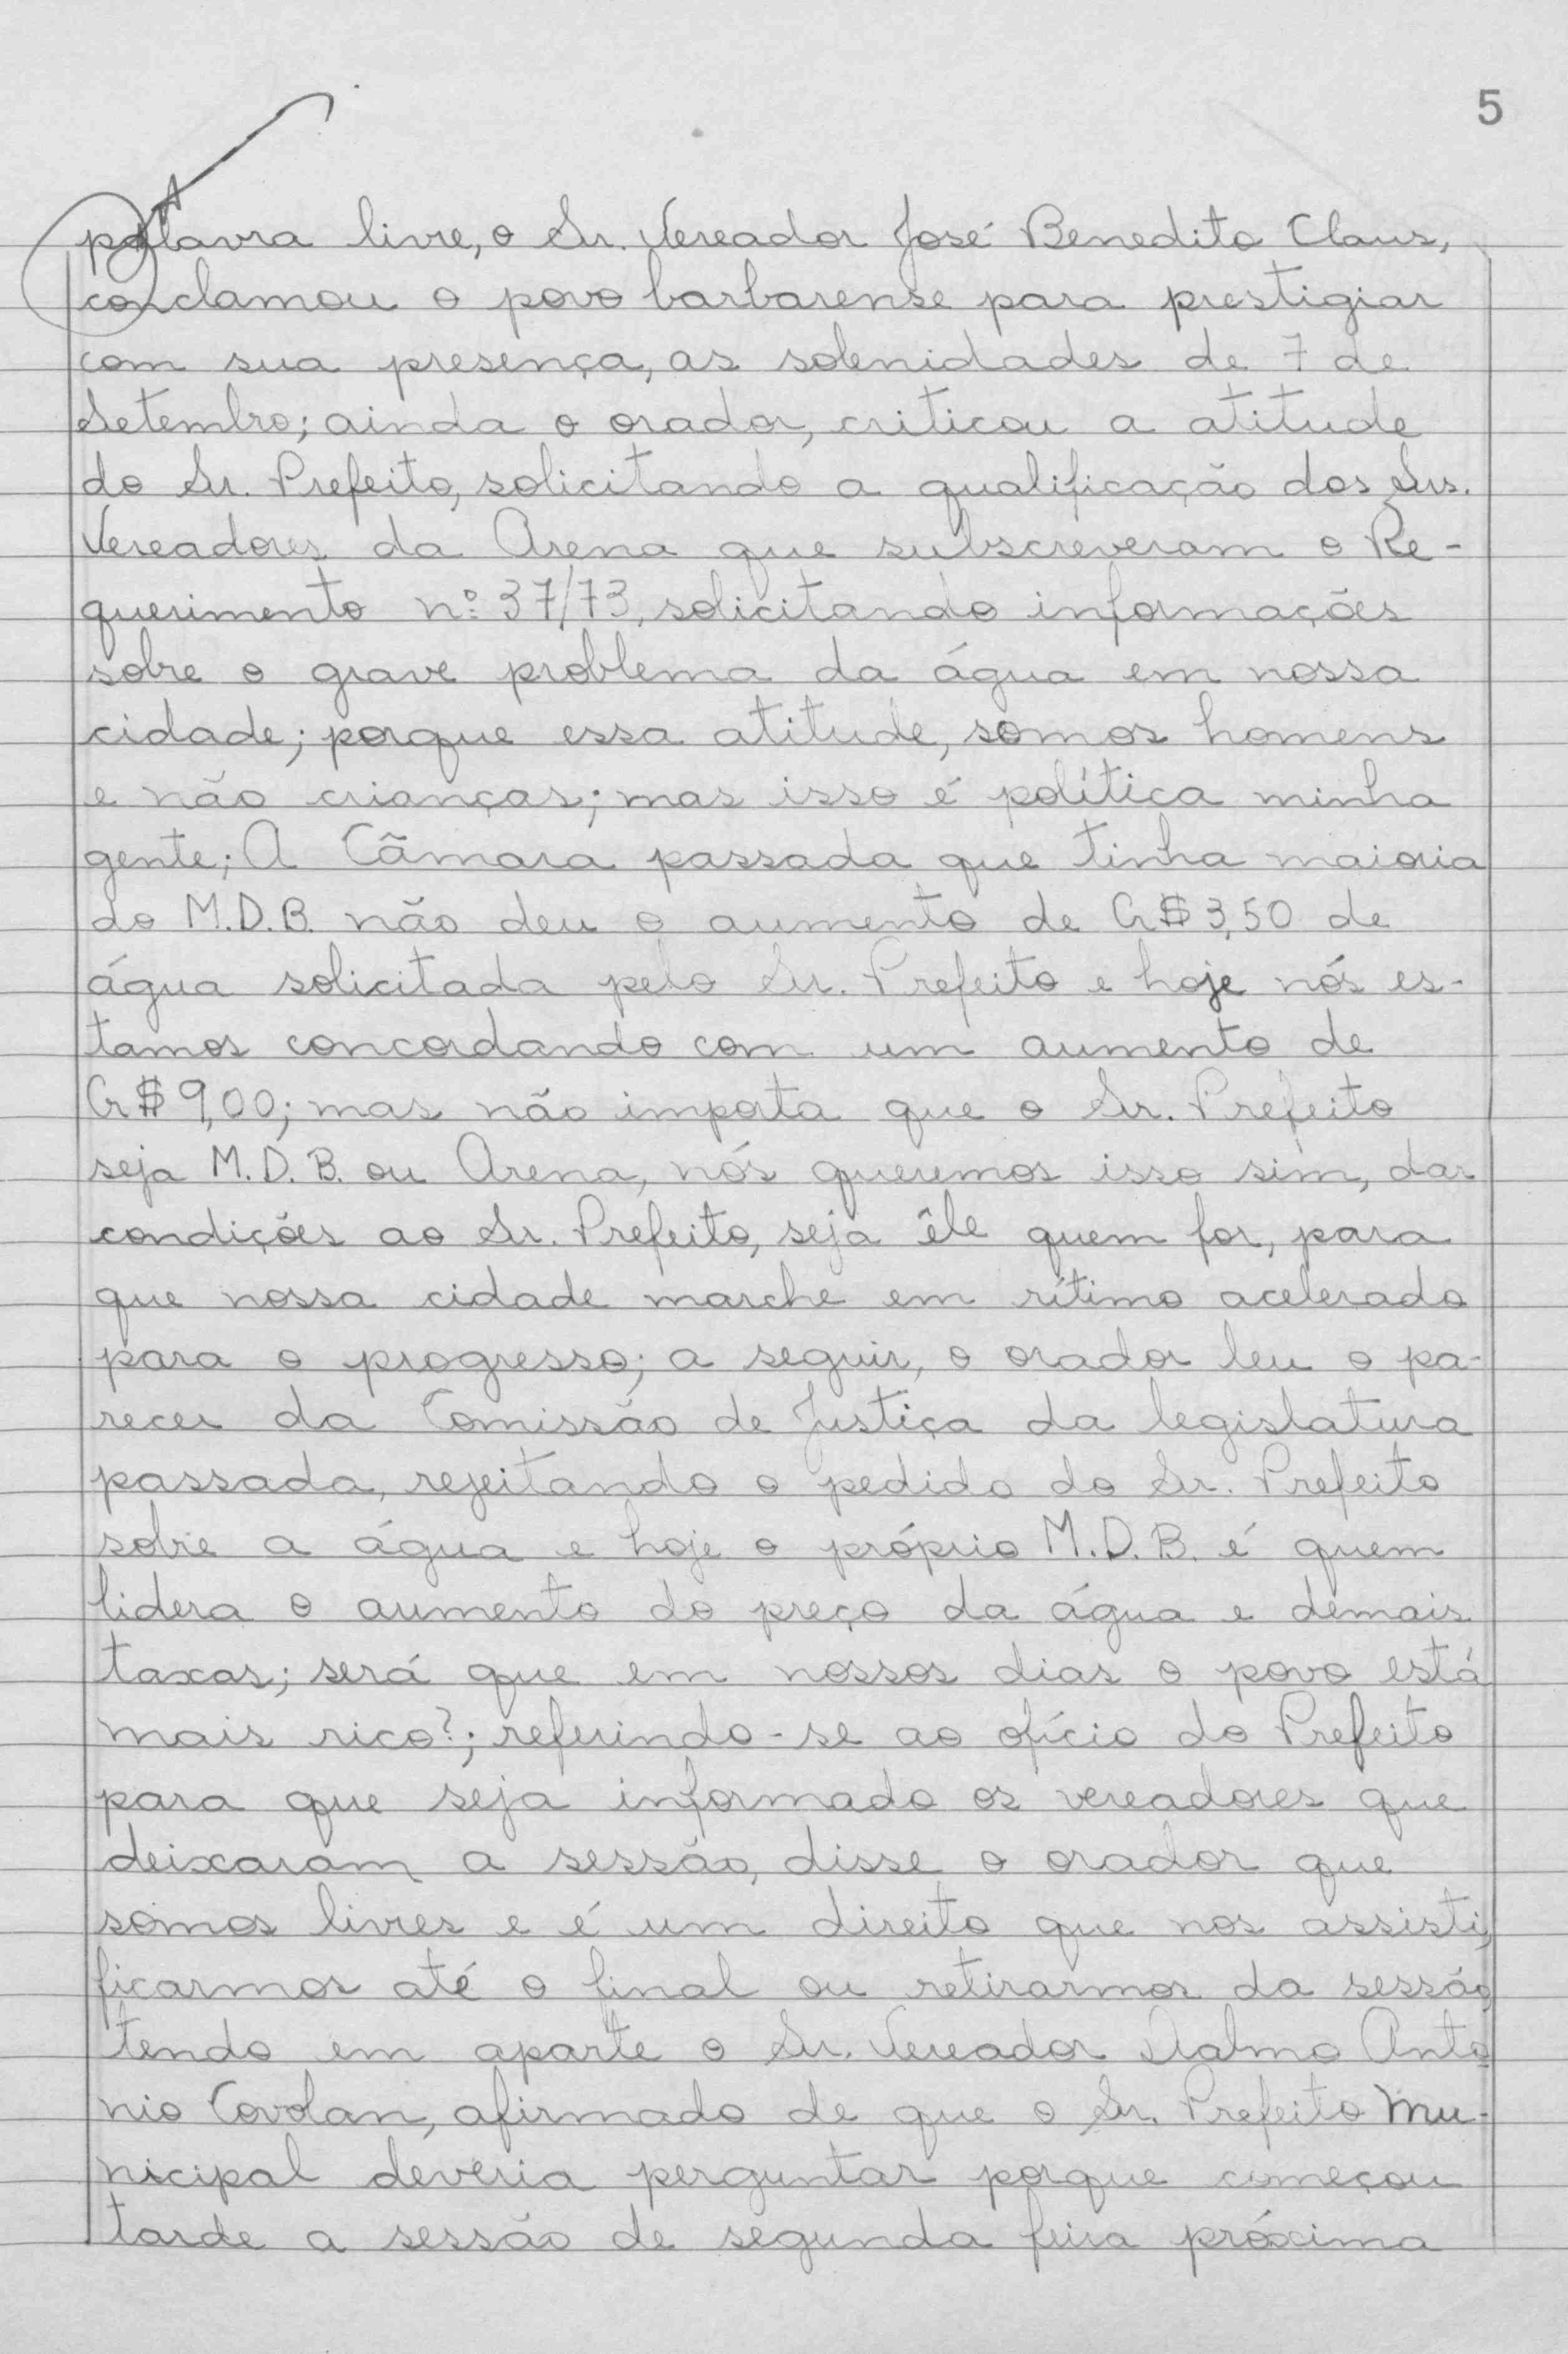 5
palavra livre, o Sr. Vereador José Benedito Claus,
conclamou o povo barbarense para prestigiar
com sua presença, as solenidades de 7 de
Setembro; ainda o orador, criticou a atitude
do Sr. Prefeito, solicitando a qualificação dos Srs.
Vereadores da Arena que subscreveram o Re-
querimento nº 37/73, solicitando informações
sobre o grave problema da água em nossa
cidade; porque essa atitude, somos homens
e não crianças; mas isso é política minha
gente; A Cãmara passada que tinha maioria
do M.D.B. não deu o aumento de Cr$ 3,50 de
água solicitada pelo Sr. Prefeito e hoje nós es-
tamos concordando com um aumento de
Cr$ 9,00; mas não importa que o Sr. Prefeito
seja M.D.B. ou Arena, nós queremos isso sim, dar
condições ao Sr. Prefeito, seja êle quem for, para
que nossa cidade marche em rítimo acelerado
para o progresso; a seguir, o orador leu o pa-
recer da Comissão de Justiça da legislatura
passada, rejeitando o pedido do Sr. Prefeito
sobre a água e hoje o próprio M.D.B. é quem
lidera o aumento do preço da água e demais
taxas; será que em nossos dias o povo está
mais rico?; referindo-se ao ofício do Prefeito
para que seja informado os vereadores que
deixaram a sessão, disse o orador que
somos livres e é um direito que nos assisti,
ficarmos até o final ou retirarmos da sessão,
tendo em aparte o Sr. Vereador Dalmo Anto
nio Covolan, afirmado de que o Sr. Prefeito Mu-
nicipal deveria perguntar porque começou
tarde a sessão de segunda feira próxima